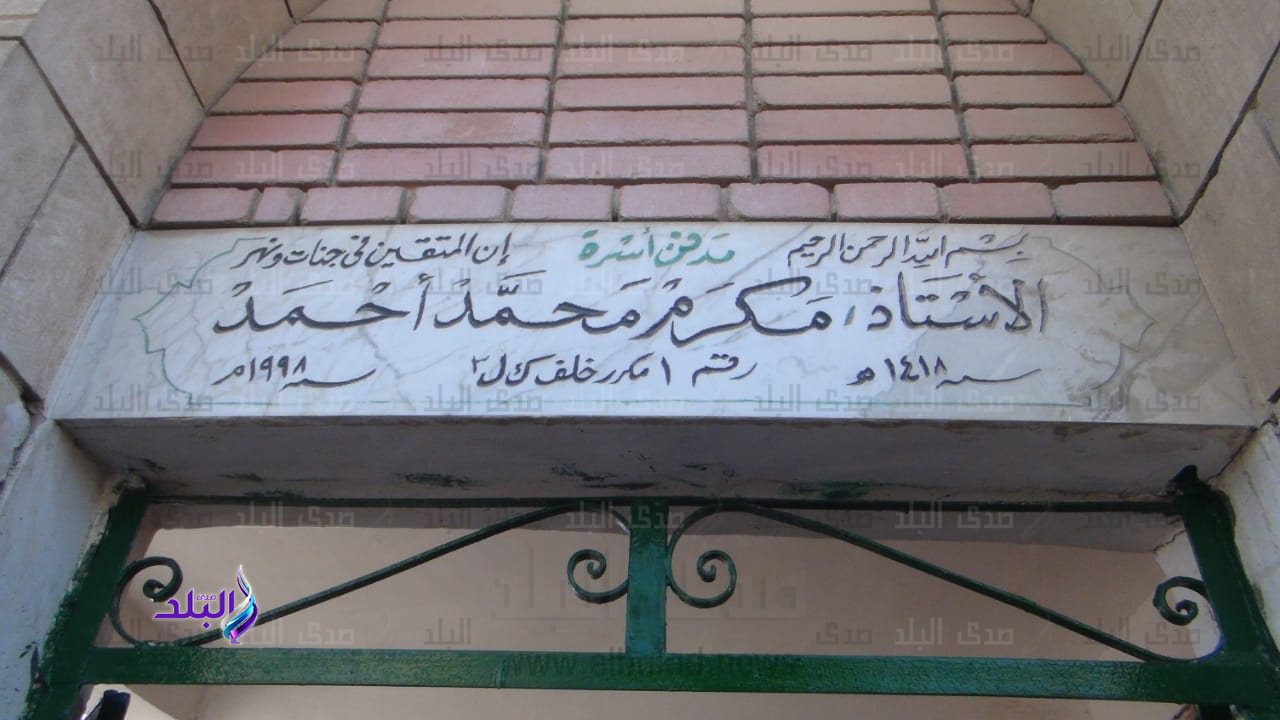 بسم الله الرحمن الرحيم مدفن أسرة إن المتقين في جنات ونهر
الأستاذ / مكرم محمد أحمد
سنة ١٤١٨ هـ رقم ١ مكرر خلف ك ل ٢ سنة ١٩٩٨ م
صدى البلد
www.elbalad.news